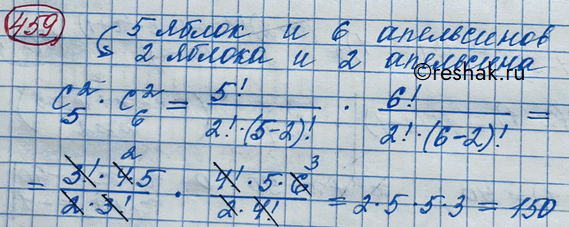 459 5 яблок и 6 апельсинов
2 яблока и 2 апельсина
©reshak.ru
C₅² · C₆² = 5! / (2!·(5-2)!) · 6! / (2!·(6-2)!) =
= (3!·4·5) / (2·3!) · (4!·5·6) / (2·4!) = 2·5·5·3 = 150